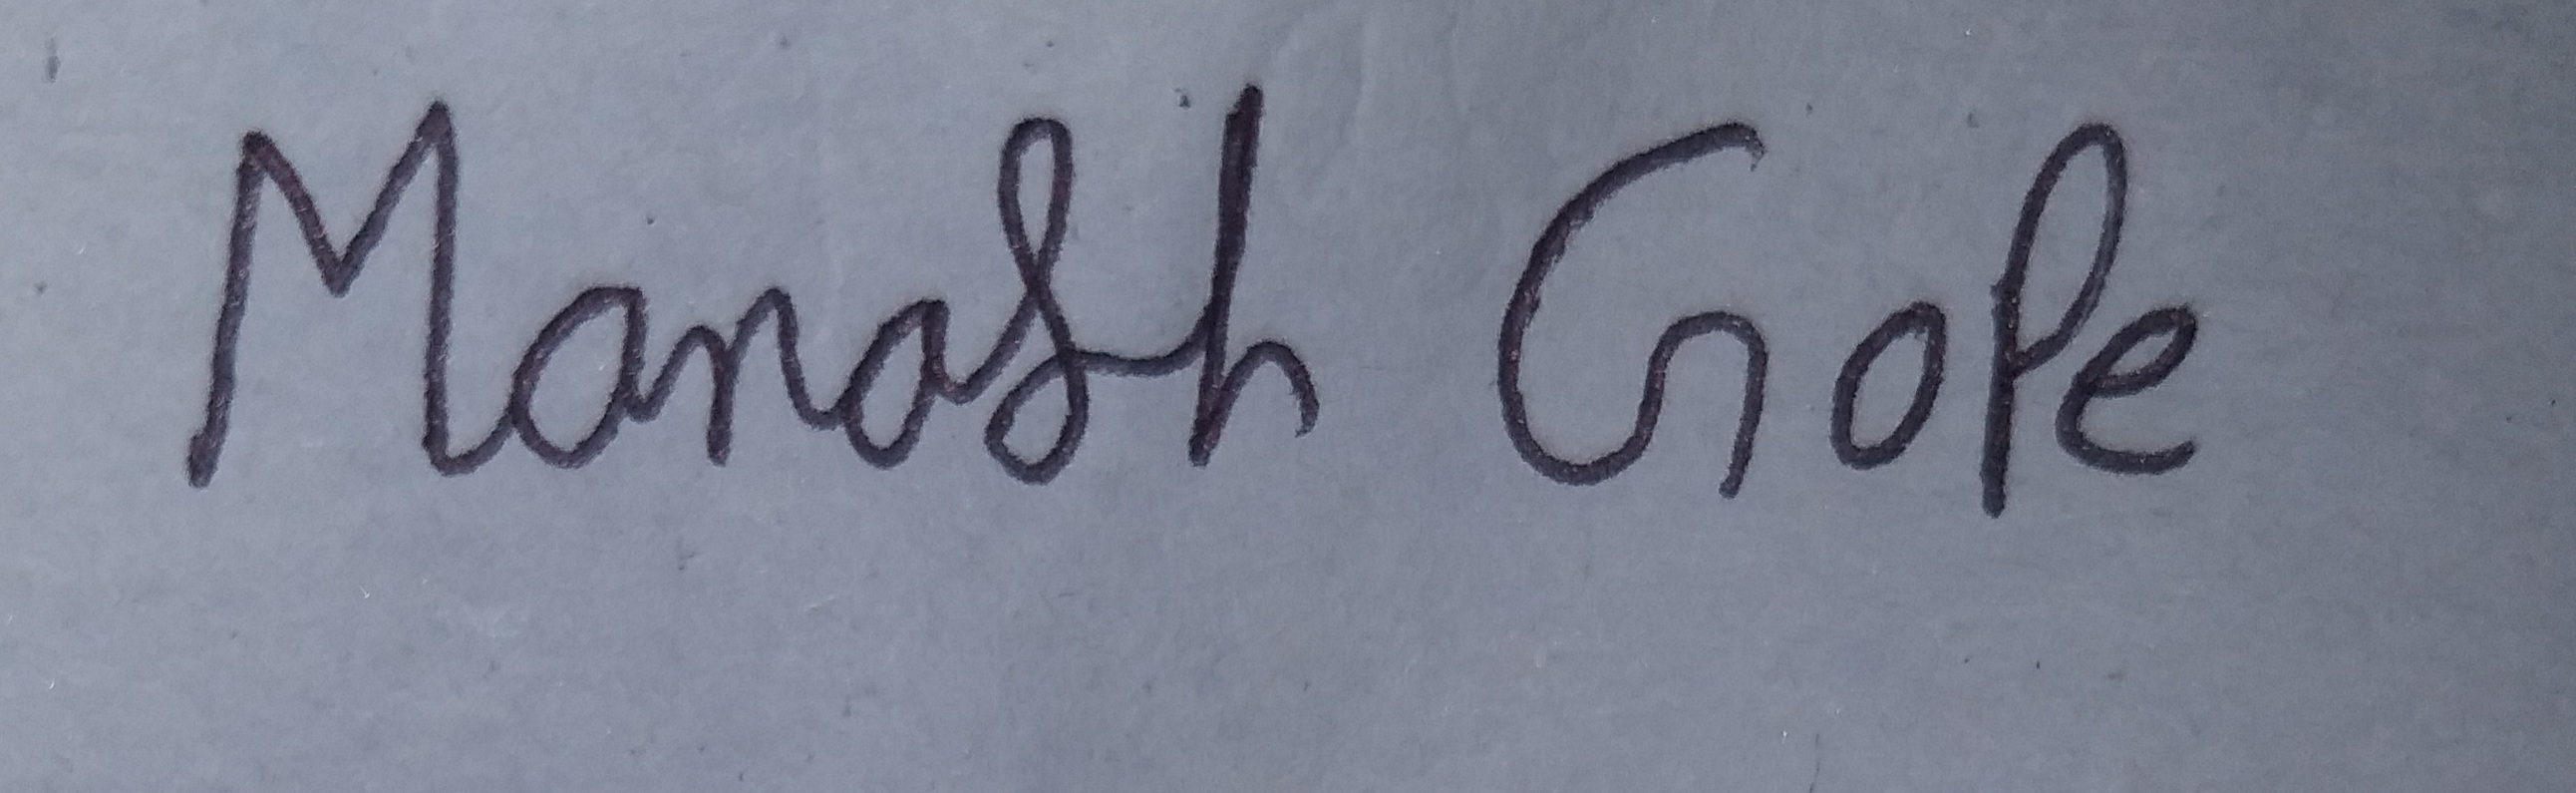 Manash Gope